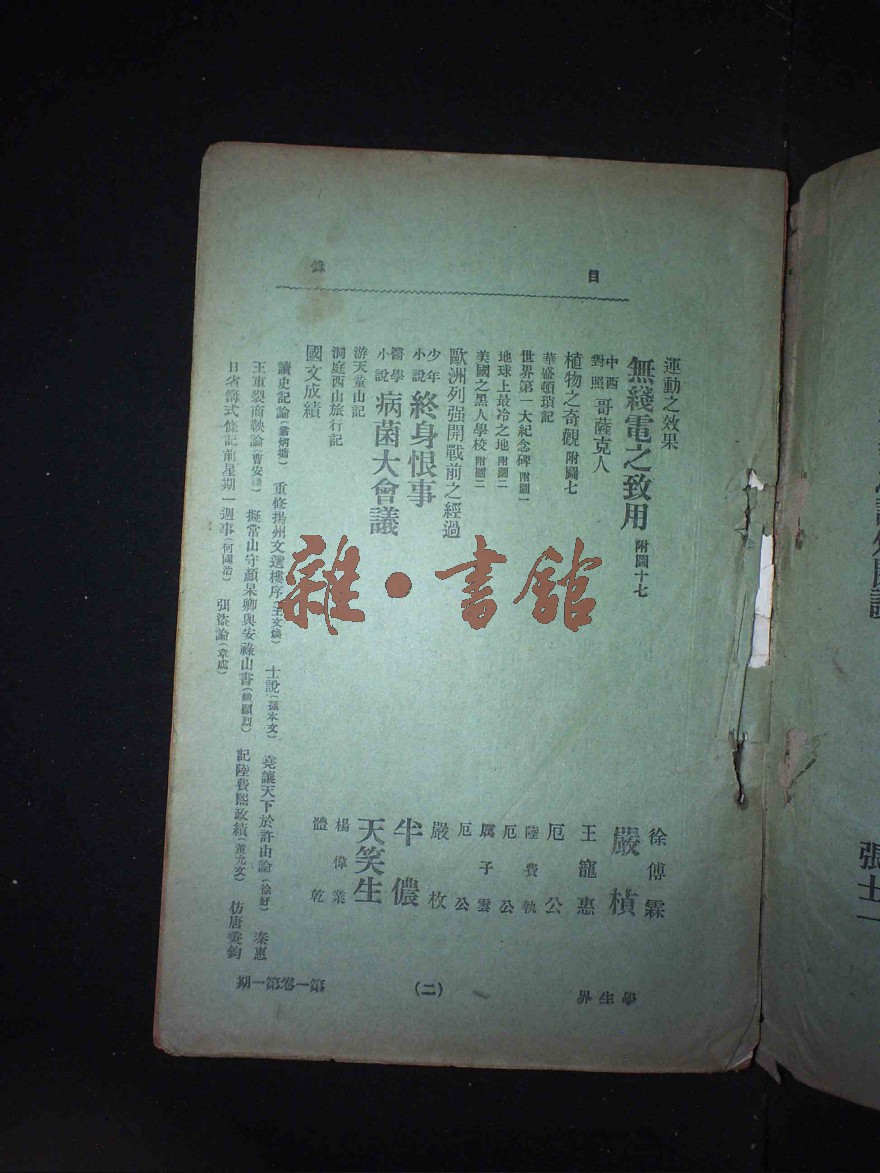 目錄
運動之效果 徐傅霖
無綫電之致用 附圖十七 嚴楨
中西對照 哥薩克人 王寵惠
植物之奇觀 附圖七 厄公
華盛頓瑣記 陸費執
世界第一大紀念碑 附圖一 厄公
地球上最冷之地 附圖二 厲子雲
美國之黑人學校 附圖二 厄公
歐洲列强開戰前之經過 嚴枚
少年小說 終身恨事 半儂
醫學小說 病菌大會議 天笑生
游天童山記 楊偉業
洞庭西山旅行記 體乾
國文成績
讀史記論 重修揚州文選樓序(王文煥) 士說(孫本文) 堯讓天下於許由論 秦惠
王車裂商鞅論 擬常山守顏杲卿與安祿山書 記陸費熙政績(董允文) 仿唐甄鈞
日省籌式條記前星期一週事(何國治) 張 論(章成)
學生界
(二)
第一卷第一期
雜·書館
張士一